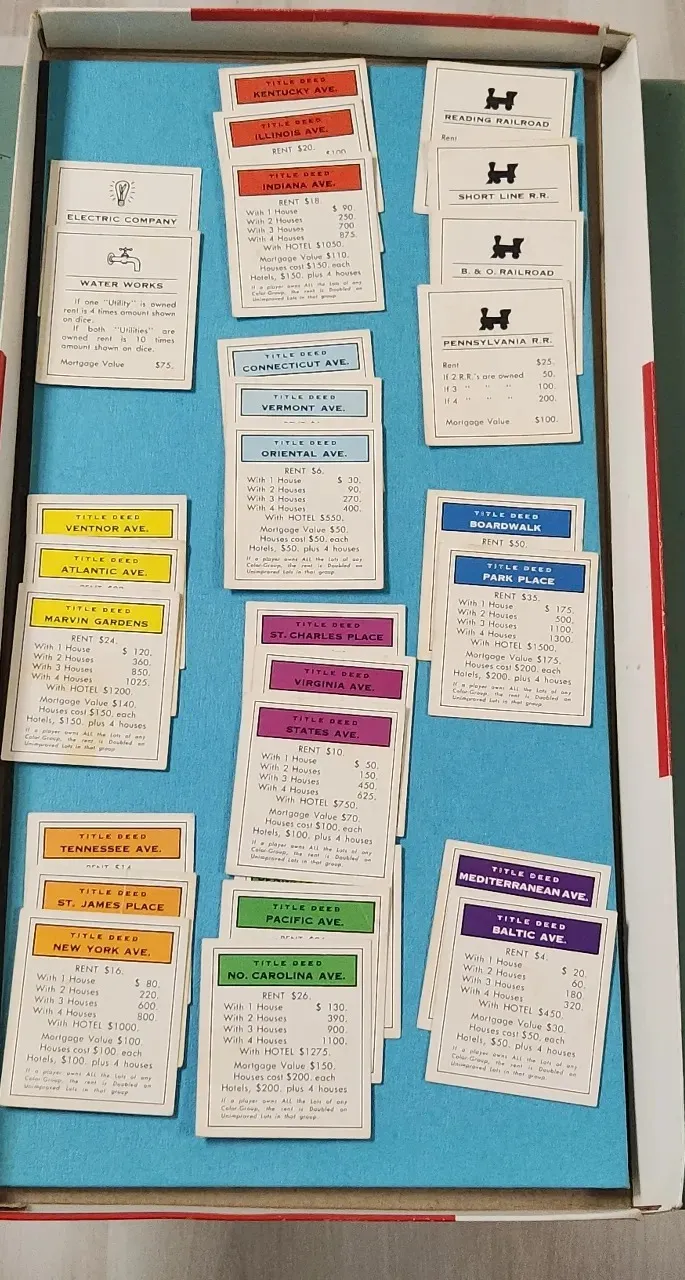 ELECTRIC COMPANY
WATER WORKS
If one "Utility" is owned
rent is 4 times amount shown
on dice.
If both "Utilities" are
owned rent is 10 times
amount shown on dice.
Mortgage Value $75.
TITLE DEED
VENTNOR AVE.
TITLE DEED
ATLANTIC AVE.
TITLE DEED
MARVIN GARDENS
RENT $24.
With 1 House $ 120.
With 2 Houses 360.
With 3 Houses 850.
With 4 Houses 1025.
With HOTEL $1200.
Mortgage Value $140.
Houses cost $150. each
Hotels, $150. plus 4 houses
If a player owns ALL the Lots of any
Color-Group, the rent is Doubled on
Unimproved Lots in that group.
TITLE DEED
TENNESSEE AVE.
RENT $14.
TITLE DEED
ST. JAMES PLACE
TITLE DEED
NEW YORK AVE.
RENT $16.
With 1 House $ 80.
With 2 Houses 220.
With 3 Houses 600.
With 4 Houses 800.
With HOTEL $1000.
Mortgage Value $100.
Houses cost $100. each
Hotels, $100. plus 4 houses
If a player owns ALL the Lots of any
Color-Group, the rent is Doubled on
Unimproved Lots in that group.
TITLE DEED
KENTUCKY AVE.
TITLE DEED
ILLINOIS AVE.
RENT $20.
$100.
TITLE DEED
INDIANA AVE.
RENT $18.
With 1 House $ 90.
With 2 Houses 250.
With 3 Houses 700.
With 4 Houses 875.
With HOTEL $1050.
Mortgage Value $110.
Houses cost $150. each
Hotels, $150. plus 4 houses
If a player owns ALL the Lots of any
Color-Group, the rent is Doubled on
Unimproved Lots in that group.
TITLE DEED
CONNECTICUT AVE.
TITLE DEED
VERMONT AVE.
TITLE DEED
ORIENTAL AVE.
RENT $6.
With 1 House $ 30.
With 2 Houses 90.
With 3 Houses 270.
With 4 Houses 400.
With HOTEL $550.
Mortgage Value $50.
Houses cost $50. each
Hotels, $50. plus 4 houses
If a player owns ALL the Lots of any
Color-Group, the rent is Doubled on
Unimproved Lots in that group.
TITLE DEED
ST. CHARLES PLACE
TITLE DEED
VIRGINIA AVE.
TITLE DEED
STATES AVE.
RENT $10.
With 1 House $ 50.
With 2 Houses 150.
With 3 Houses 450.
With 4 Houses 625.
With HOTEL $750.
Mortgage Value $70.
Houses cost $100. each
Hotels, $100. plus 4 houses
If a player owns ALL the Lots of any
Color-Group, the rent is Doubled on
Unimproved Lots in that group.
TITLE DEED
PACIFIC AVE.
TITLE DEED
NO. CAROLINA AVE.
RENT $26.
With 1 House $ 130.
With 2 Houses 390.
With 3 Houses 900.
With 4 Houses 1100.
With HOTEL $1275.
Mortgage Value $150.
Houses cost $200. each
Hotels, $200. plus 4 houses
If a player owns ALL the Lots of any
Color-Group, the rent is Doubled on
Unimproved Lots in that group.
READING RAILROAD
Rent
SHORT LINE R.R.
B. & O. RAILROAD
PENNSYLVANIA R.R.
Rent $25.
If 2 R.R.'s are owned 50.
If 3 " " " 100.
If 4 " " " 200.
Mortgage Value $100.
TITLE DEED
BOARDWALK
RENT $50.
TITLE DEED
PARK PLACE
RENT $35.
With 1 House $ 175.
With 2 Houses 500.
With 3 Houses 1100.
With 4 Houses 1300.
With HOTEL $1500.
Mortgage Value $175.
Houses cost $200. each
Hotels, $200. plus 4 houses
If a player owns ALL the Lots of any
Color-Group, the rent is Doubled on
Unimproved Lots in that group.
TITLE DEED
MEDITERRANEAN AVE.
TITLE DEED
BALTIC AVE.
RENT $4.
With 1 House $ 20.
With 2 Houses 60.
With 3 Houses 180.
With 4 Houses 320.
With HOTEL $450.
Mortgage Value $30.
Houses cost $50. each
Hotels, $50. plus 4 houses
If a player owns ALL the Lots of any
Color-Group, the rent is Doubled on
Unimproved Lots in that group.